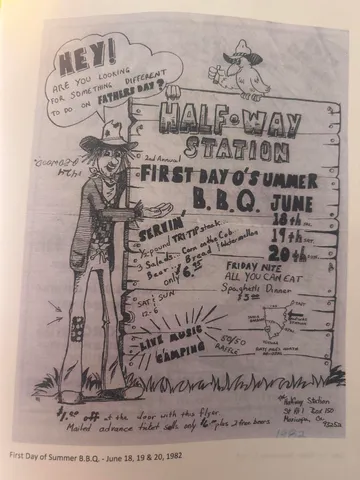 HEY!
ARE YOU LOOKING
FOR SOMETHING DIFFERENT
TO DO ON FATHERS DAY?
HALF-WAY
STATION
2nd Annual
FIRST DAY O'SUMMER
B.B.Q. JUNE
18th
19th
20th
SERVIN'
TRI TIP steak
3 Salads... Corn on the Cob
Beer / Bread / Watermellon
only $6.00
FRIDAY NITE
ALL YOU CAN EAT
Spaghetti Dinner
$5.00
SAT / SUN
12-6
LIVE MUSIC
CAMPING
50/50
RAFFLE
off at the door with this flyer.
Mailed advance ticket sales only plus 2 free beers
Halfway Station
St Rt 1 Box 150
Maricopa, Ca.
93252
1982
First Day of Summer B.B.Q. - June 18, 19 & 20, 1982